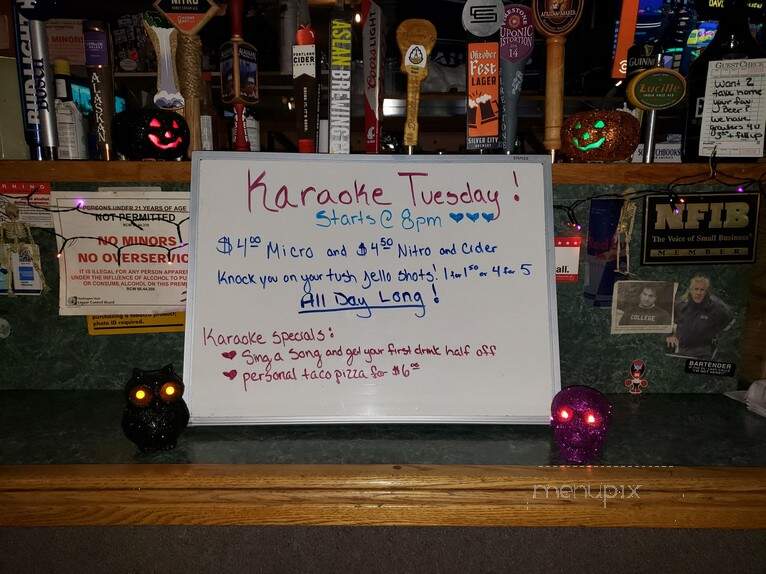 NITRO
BUD LIGHT
ALASKAN
PORTLAND CIDER COMPANY
ASLAN BREWING
Coors LIGHT
Oktober Fest LAGER
SILVER CITY
14
GUINNESS
Lucille
GUESTCHECK
Want 2
take home
your fav
Beer?
we have
growlers 4 u
$5 + fill up
MINORS
Karaoke Tuesday!
Starts @ 8pm
$4.00 Micro and $4.50 Nitro and Cider
Knock you on your tush Jello Shots! 1 for 1.50 or 4 for 5
All Day Long!
Karaoke Specials:
Sing a Song and get your first drink half off
personal taco pizza for $6.00
PERSONS UNDER 21 YEARS OF AGE
NOT PERMITTED
NO MINORS
NO OVERSERVIC
IT IS ILLEGAL FOR ANY PERSON APPARE
UNDER THE INFLUENCE OF ALCOHOL TO PU
OR CONSUME ALCOHOL ON THIS PREM
photo ID required.
all.
NFIB
The Voice of Small Business
MEMBER
COLLEGE
BARTENDER
menupix